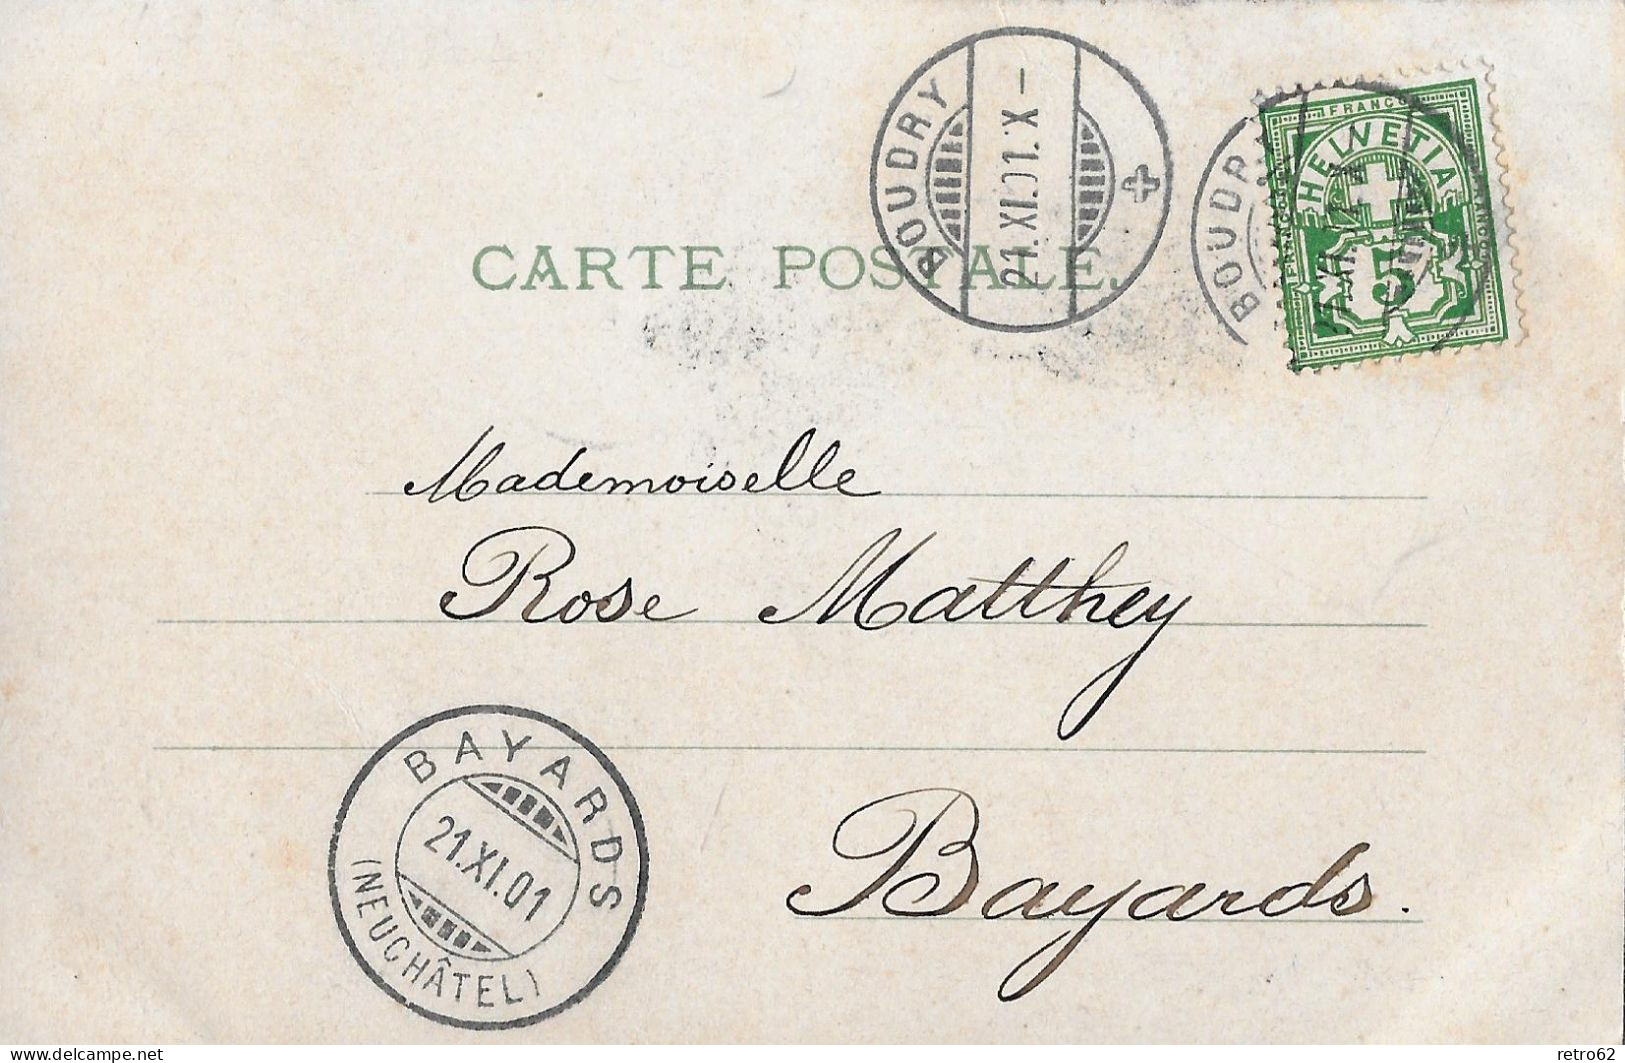 BOUDRY
21.XI.01.X–
BOUDRY
FRANCO
HELVETIA
FRANCO
FRANCO
5
CARTE POSTALE.
Mademoiselle
Rose Matthey
BAYARDS
21.XI.01
(NEUCHÂTEL)
Bayards.
www.delcampe.net
retro62